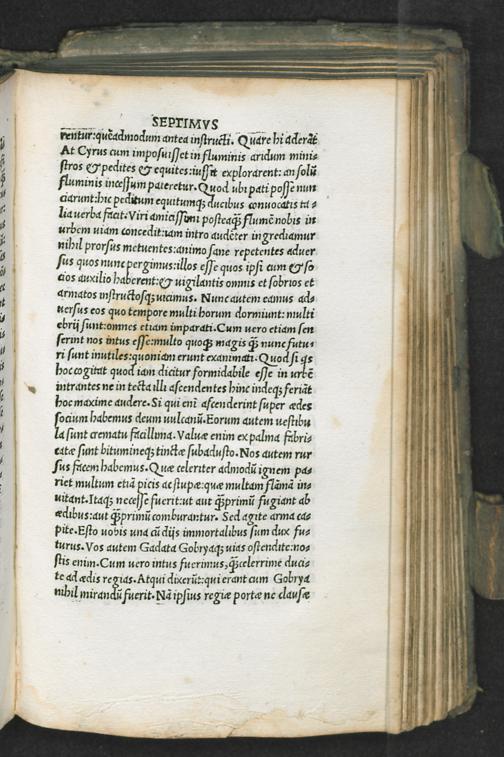 SEPTIMVS
rentur:quēadmodum antea instructi. Quare hi aderāt
At Cyrus cum imposuisset in fluminis aridum mini⸗
stros & pedites & equites:iussit explorarent: an solū
fluminis incessum pateretur. Quod ubi pati posse nun
ciarunt:hic peditum equitumq; ducibus conuocatis ta⸗
lia uerba facit:Viri amicissimi posteaq̃ flumē nobis in
urbem uiam concedit:iam intro audēter ingrediamur
nihil prorsus metuentes:animo sane repetentes aduer
sus quos nunc pergimus:illos esse quos ipsi cum & so
cios auxilio haberent:& uigilantis omnis et sobrios et
armatos instructosq; uicimus. Nunc autem eamus ad⸗
uersus eos quo tempore multi horum dormiunt: multi
ebrij sunt:omnes etiam imparati. Cum uero etiam sen
serint nos intus esse:multo quoq; magis q̃ nunc futu⸗
ri sunt inutiles:quoniam erunt exanimati. Quod si q̃s
hoc cogitat quod iam dicitur formidabile esse in urbē
intrantes ne in tecta illi ascendentes hinc indeq; feriāt
hoc maxime audere. Si qui enī ascenderint super ædes
socium habemus deum uulcanū. Eorum autem uestibu
la sunt crematu facillima. Valuæ enim ex palma fabri⸗
catæ sunt bitumineq; tinctæ subadusto. Nos autem rur
sus facem habemus. Quæ celeriter admodū ignem pa⸗
riet multum etiā picis ac stupæ:quæ multam flāmā in⸗
uitant. Itaq; necesse fuerit:ut aut q̃primū fugiant ab
ædibus:aut q̃primū comburantur. Sed agite arma ca⸗
pite. Ego uobis una cū dijs immortalibus sum dux fu⸗
turus. Vos autem Gadata Gobryaq; uias ostendite:no⸗
stis enim. Cum uero intus fuerimus, q̃celerrime duci⸗
te ad ædis regias. Atqui dixerūt:qui erant cum Gobrya
nihil mirandū fuerit. Nā ipsius regiæ portæ ne clausæ